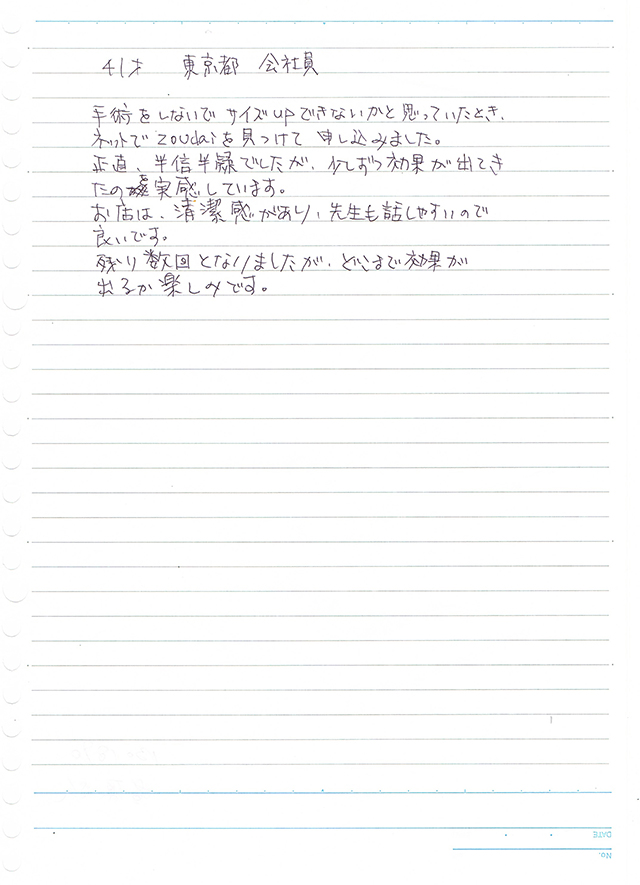 41才 東京都 会社員
手術をしないでサイズupできないかと思っていたとき、
ネットでzoudaiを見つけて申し込みました。
正直、半信半疑でしたが、少しずつ効果が出てき
たのを実感しています。
お店は、清潔感があり、先生も話しやすいので
良いです。
残り数回となりましたが、どこまで効果が
出るか楽しみです。
DATE
No.